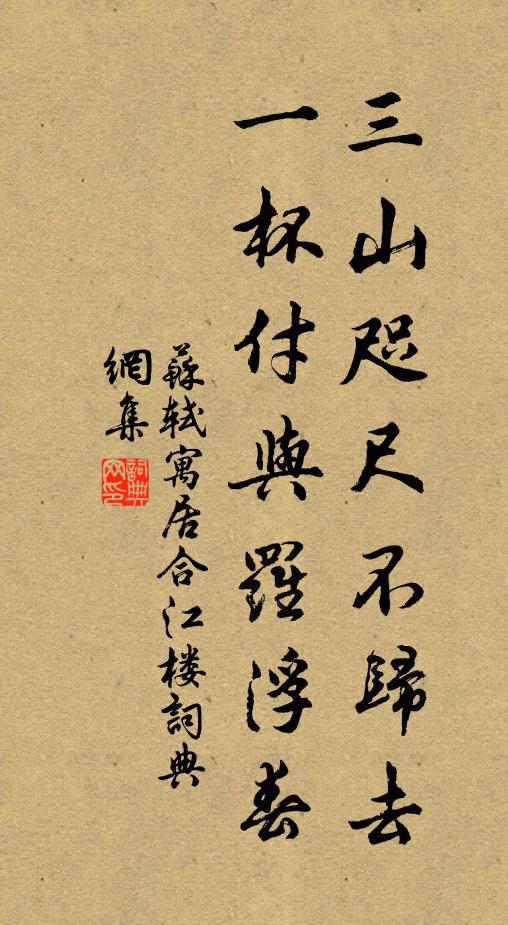 三山咫尺不歸去
一杯付與羅浮春
蘇軾寓居合江楼詞典
網集
詞典網印